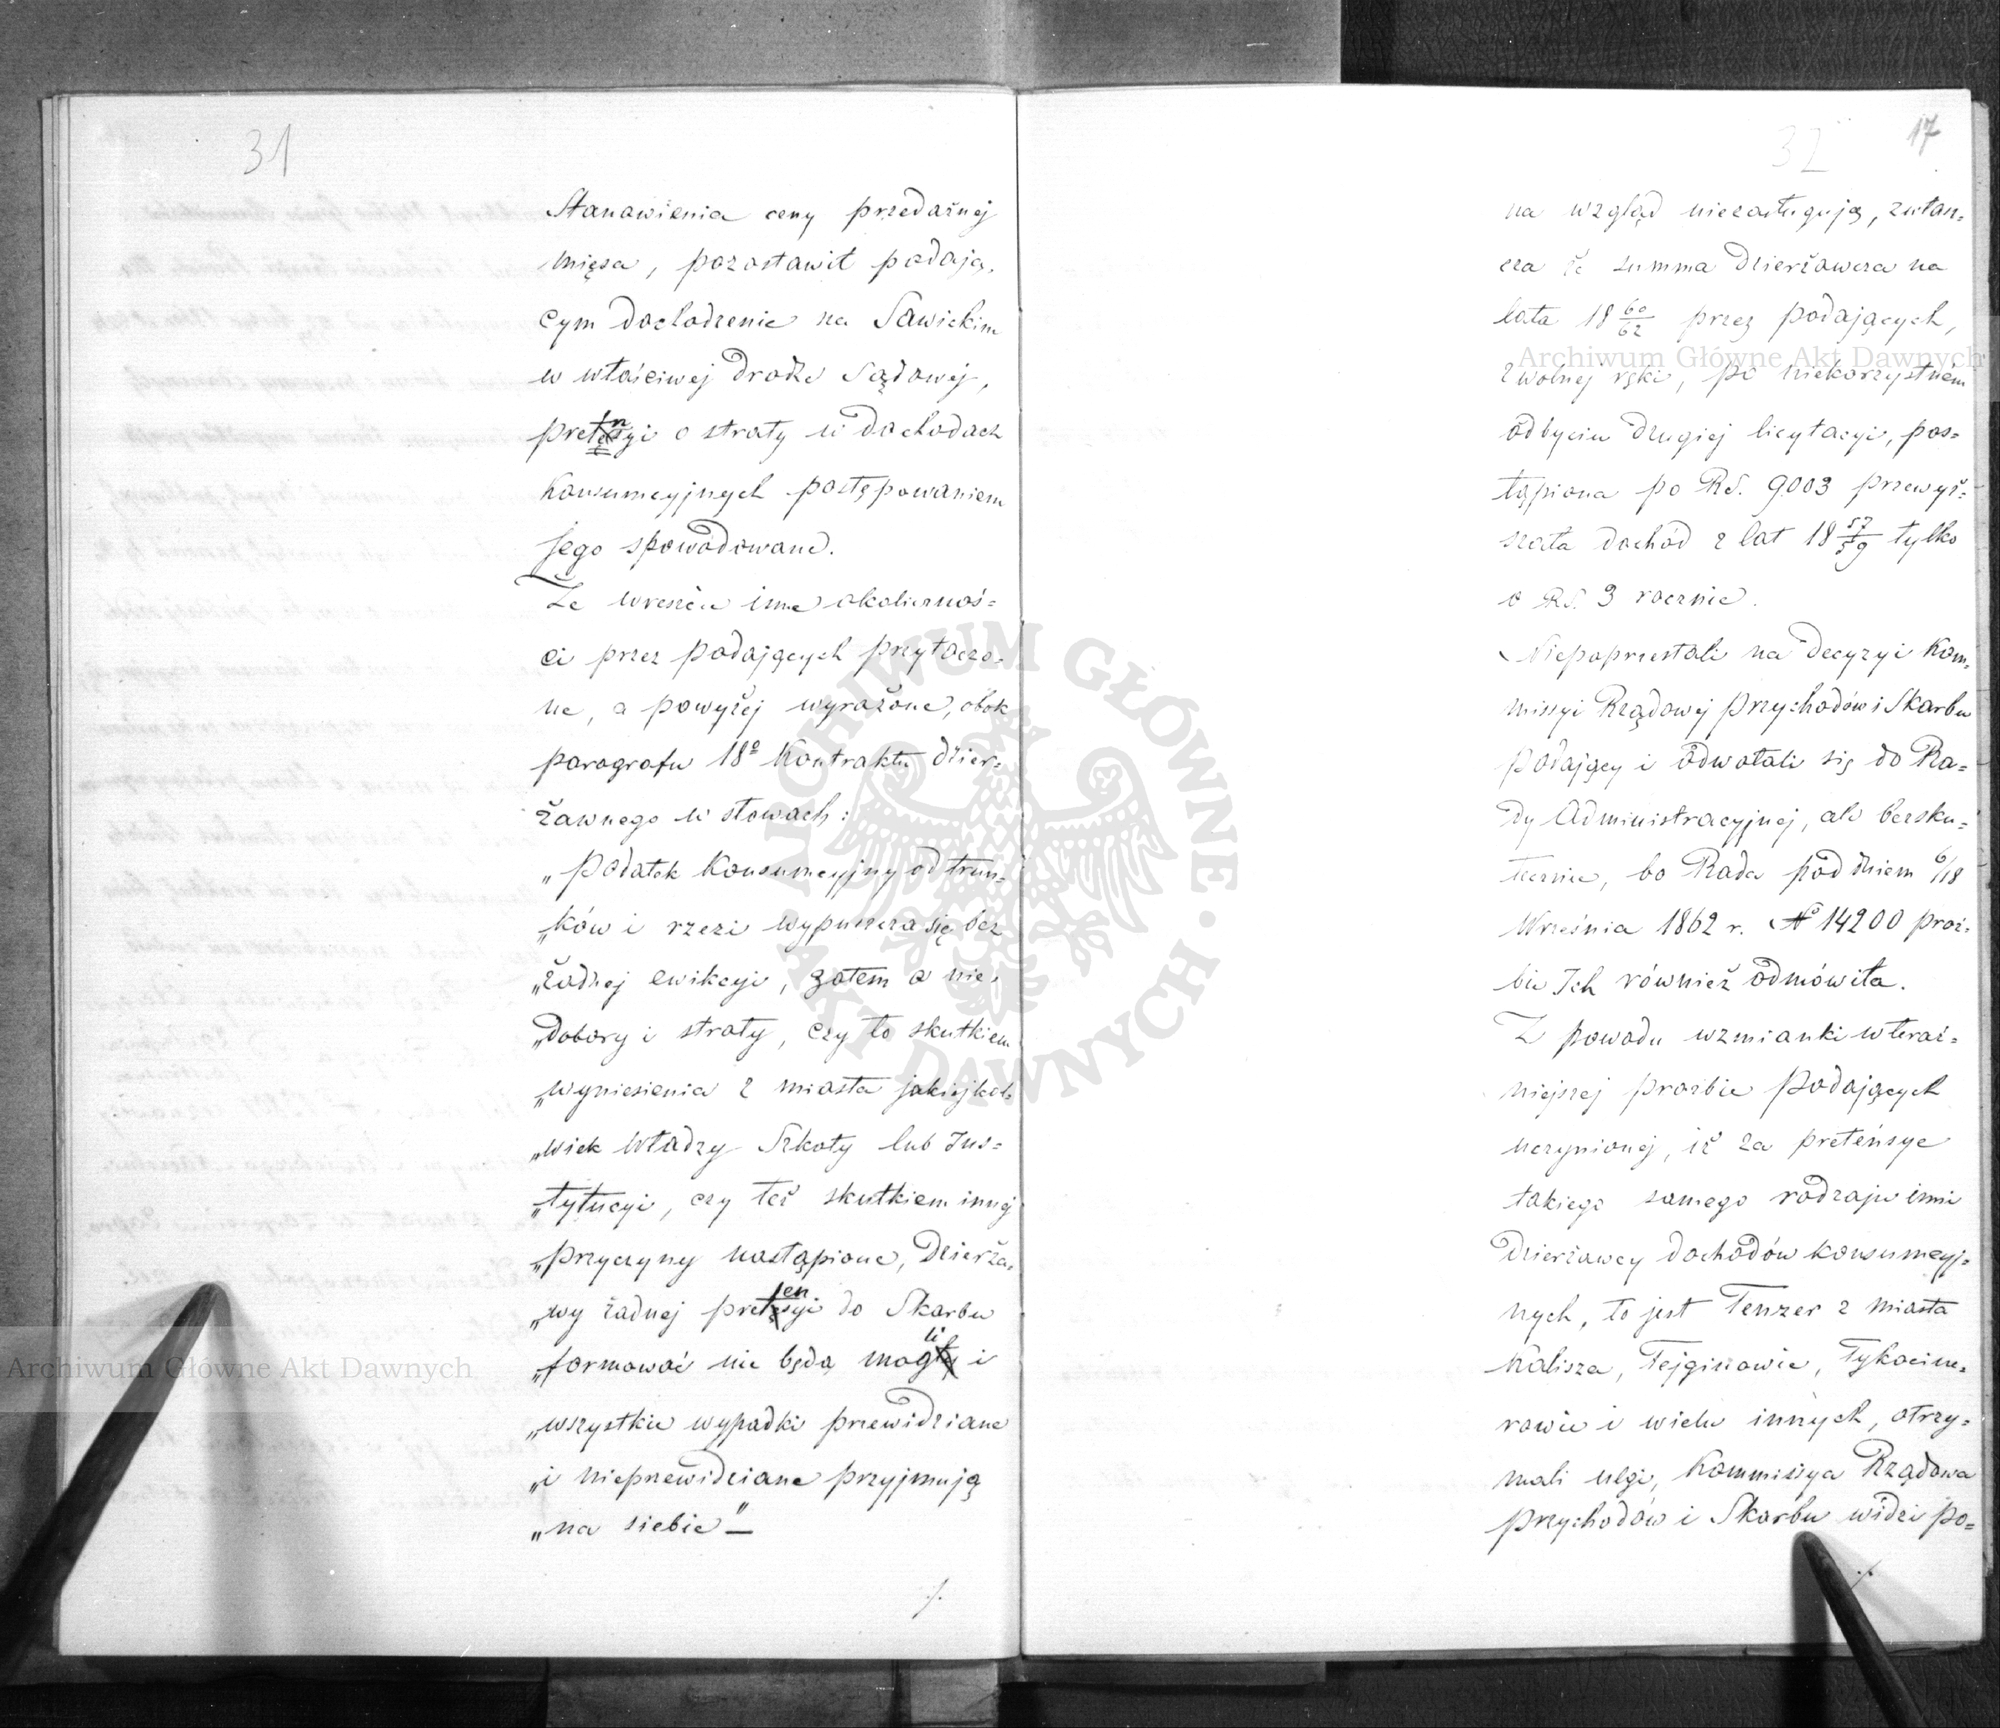 31
Stanawienia ceny przedażnej
mięsa, pozostawił podają,
cym dochodzenie na Sawickim
w właściwej drodze Sądowej,
pretensyi o straty w dochodach
konsumcyjnych postępowaniem
Jego spowodowane.
Że wreszcie inne okolicznoś=
ci przez podających przytoczo=
ne, a powyżej wyrażone, obok
paragrafu 18º Kontraktu dzier=
żawnego w słowach:
„Podatek Konsumcyjny od trun=
„ków i rzezi wypuszcza się bez
„żadnej ewikcyi, zatem o nie,
„dobory i straty, czy to skutkiem
„wyniesienia z miasta jakiejkol=
„wiek Władzy Szkoły lub Ins=
„tytucyi, czy też skutkiem innej
„przyczyny nastąpione, Dzierża=
„wy żadnej pretensyi do Skarbu
„formować nie będą mogli i
„wszystkie wypadki przewidziane
„i nieprzewidziane przyjmują
„na siebie"—
./.
32
17
na wzgląd niezasługują, zwłasz=
cza że summa dzierżawcza na
lata 18 60/62 przez podających,
z wolnej ręki, po niekorzystném
odbyciu drugiej licytacyi, pos=
tąpiona po RS. 9003 przewyż=
szała dochód z lat 18 57/59 tylko
o RS. 3 rocznie.
Niepoprzestali na decyzyi Kom=
missyi Rządowej Przychodów i Skarbu
podający i odwołali się do Ra=
dy Administracyjnej, ale bezsku=
tecznie, bo Rada pod dniem 6/18
Września 1862 r. Nº 14200 proś=
bie Ich również odmówiła.
Z powodu wzmianki w teraź=
niejszej prośbie podających
uczynionej, iż za pretensye
takiego samego rodzaju inni
Dzierżawcy dochodów konsumcyj=
nych, to jest Tenzer z miasta
Kalisza, Fejginowie, Tykocine=
rowie i wielu innych, otrzy=
mali ulgi, Kommissya Rządowa
Przychodów i Skarbu widzi po=
./.
Archiwum Główne Akt Dawnych
Archiwum Główne Akt Dawnych
ARCHIWUM GŁÓWNE · AKT DAWNYCH ·